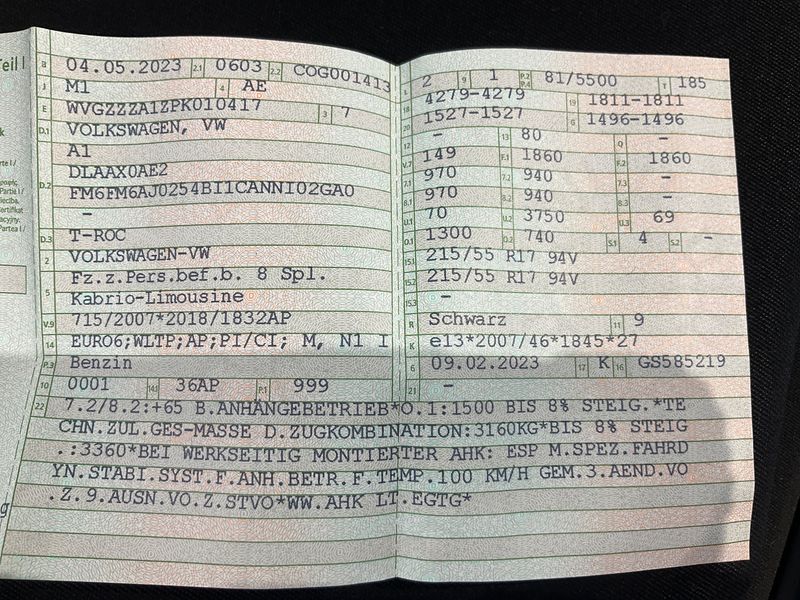 Teil I
B 04.05.2023 2.1 0603 2.2 COG001413
J M1 4 AE
E WVGZZZA1ZPK010417 3 7
D.1 VOLKSWAGEN, VW
A1
D.2 DLAAX0AE2
FM6FM6AJ0254BI1CANNI02GA0
-
D.3 T-ROC
2 VOLKSWAGEN-VW
5 Fz.z.Pers.bef.b. 8 Spl.
Kabrio-Limousine
V.9 715/2007*2018/1832AP
14 EURO6;WLTP;AP;PI/CI; M, N1 I
P.3 Benzin
10 0001 14.1 36AP P.1 999
L 2 9 1 P.2 P.4 81/5500 T 185
18 4279-4279 19 1811-1811
20 1527-1527 G 1496-1496
12 - 13 80 Q -
V.7 149 F.1 1860 F.2 1860
7.1 970 7.2 940 7.3 -
8.1 970 8.2 940 8.3 -
U.1 70 U.2 3750 U.3 69
O.1 1300 O.2 740 S.1 4 S.2 -
15.1 215/55 R17 94V
15.2 215/55 R17 94V
15.3 -
R Schwarz 11 9
K e13*2007/46*1845*27
6 09.02.2023 17 K 16 GS585219
21 -
22 7.2/8.2:+65 B.ANHÄNGEBETRIEB*O.1:1500 BIS 8% STEIG.*TE
CHN.ZUL.GES-MASSE D.ZUGKOMBINATION:3160KG*BIS 8% STEIG
.:3360*BEI WERKSEITIG MONTIERTER AHK: ESP M.SPEZ.FAHRD
YN.STABI.SYST.F.ANH.BETR.F.TEMP.100 KM/H GEM.3.AEND.VO
.Z.9.AUSN.VO.Z.STVO*WW.AHK LT.EGTG*